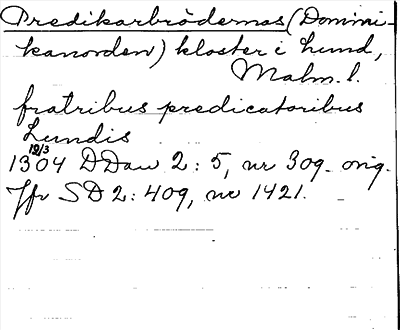 Predikarbrödernas (Domini-
kanorden) kloster i Lund,
Malm. l.
fratribus predicatoribus
Lundis
12/3
1304 DDan 2:5, nr 309. orig.
Jfr SD 2:409, nr 1421.